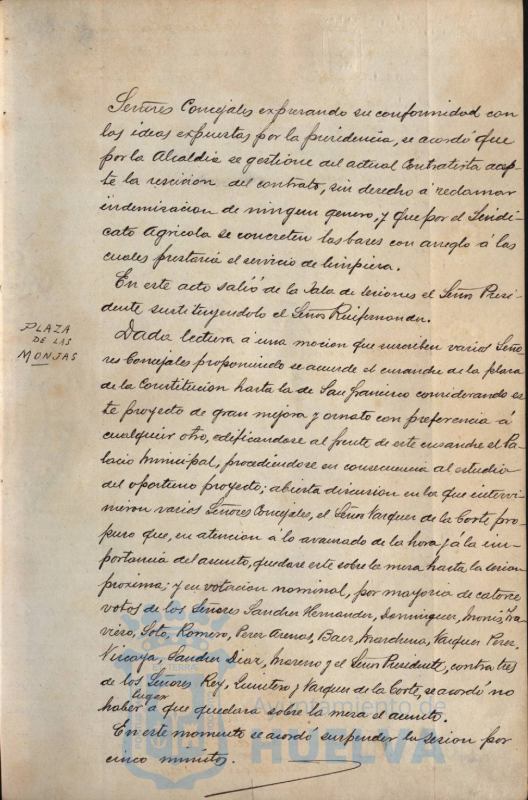 Señores Concejales expresando su conformidad con
las ideas expuestas por la presidencia, se acordó que
por la Alcaldia se gestione del actual Contratista acep-
te la rescision del contrato, sin derecho á reclamar
indemnizacion de ningun genero, y que por el Sindi-
cato Agricola se concreten las bases con arreglo á las
cuales prestaria el servicio de limpieza.
En este acto salió de la Sala de sesiones el Señor Presi-
dente sustituyendolo el Señor Ruifernandez.
PLAZA
DE LAS
MONJAS
Dada lectura á una mocion que suscriben varios Seño-
res Concejales proponiendo se acuerde el ensanche de la plaza
de la Constitucion hasta la de San Francisco considerando es-
te proyecto de gran mejora y ornato con preferencia á
cualquier otro, edificandose al frente de este ensanche el Pa-
lacio Municipal, procediendose en consecuencia al estudio
del oportuno proyecto; abierta discusion en la que intervi-
nieron varios Señores Concejales, el Señor Vazquez de la Corte pro-
puso que, en atencion á lo avanzado de la hora y á la im-
portancia del asunto, quedase este sobre la mesa hasta la sesion
proxima; y en votacion nominal, por mayoria de catorce
votos de los Señores Sanchez Hernandez, Dominguez, Monis, Tra-
vieso, Soto, Romero, Perez Arenas, Baez, Marchena, Vazquez Perez,
Vizcaya, Sanchez Diaz, Moreno y el Señor Presidente, contra tres
de los Señores Rey, Quintero y Vazquez de la Corte, se acordó no
haber lugar á que quedara sobre la mesa el asunto.
En este momento se acordó suspender la sesion por
cinco minutos.
TIERRA
Ayuntamiento de
HUELVA